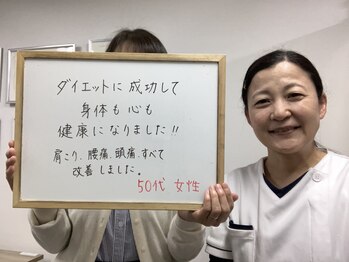 ダイエットに成功して
身体も心も
健康になりました!!
肩こり、腰痛、頭痛、すべて
改善しました。
50代 女性